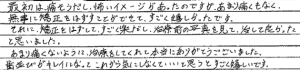 最初は、痛そうだし、怖いイメージがあったのですが、あまり痛くもなく、
無事に矯正をはずすことができて、すごく嬉しかったです。
それに、矯正をはずして、すごく楽だし、治療前の写真を見て、治して良かった
と思いました。
あまり痛くないように、治療をしてくれて本当にありがとうございました。
歯並びがキレイになって、これから気にしなくていいと思うとすごく嬉しいです。